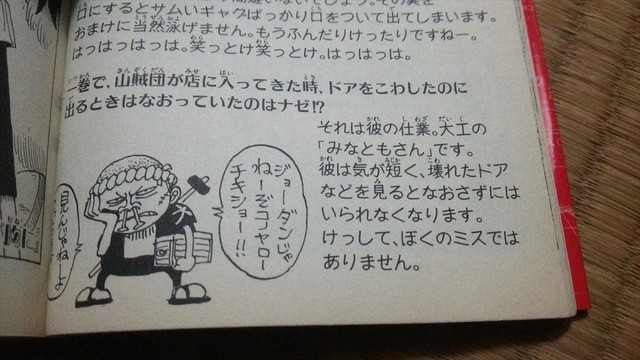 口にするとサムいギャグばっかり口をついて出てしまいます。
おまけに当然泳げません。もうふんだりけったりですねー。
はっはっはっは。笑っとけ笑っとけ。はっはっは。
一巻で、山賊団が店に入ってきた時、ドアをこわしたのに
出るときはなおっていたのはナゼ!?
それは彼の仕業。大工の
「みなともさん」です。
彼は気が短く、壊れたドア
などを見るとなおさずには
いられなくなります。
けっして、ぼくのミスでは
ありません。
ジョーダンじゃ
ねーぞコノヤロー
チキショー!!
見んじゃねーよ